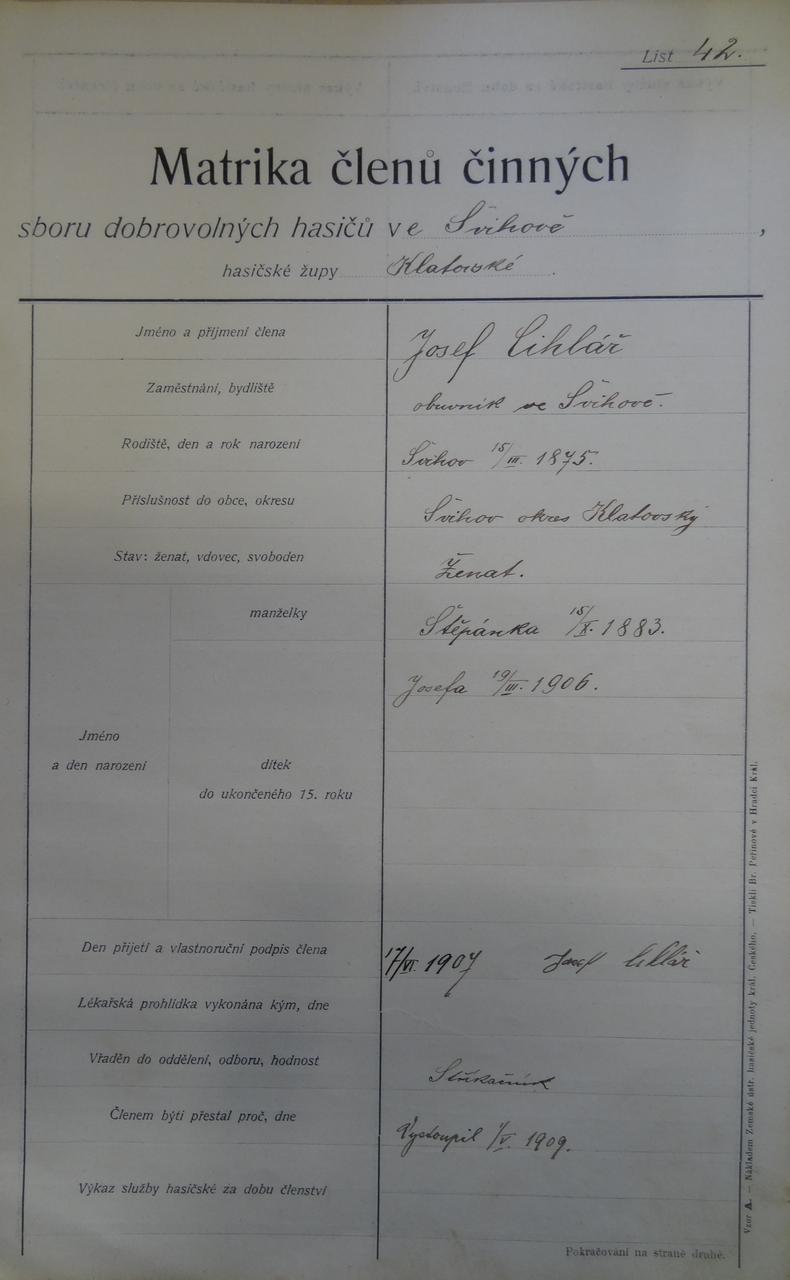 List 42.
Matrika členů činných
sboru dobrovolných hasičů ve Švihově,
hasičské župy Klatovské.
Jméno a příjmení člena Josef Cihlář
Zaměstnání, bydliště obuvník ve Švihově.
Rodiště, den a rok narození Švihov 15/III. 1875.
Příslušnost do obce, okresu Švihov okres Klatovský
Stav: ženat, vdovec, svoboden Ženat.
manželky Štěpánka 15/X. 1883.
Josefa 19/III. 1906.
Jméno
a den narození
dítek
do ukončeného 15. roku
Den přijetí a vlastnoruční podpis člena 17/VI. 1907 Josef Cihlář
Lékařská prohlídka vykonána kým, dne
Vřaděn do oddělení, odboru, hodnost Stříkačník
Členem býti přestal proč, dne Vystoupil 1/V. 1909.
Výkaz služby hasičské za dobu členství
Pokračování na straně druhé.
Vzor A. — Nákladem Zemské ústř. hasičské jednoty král. Českého. — Tiskli Br. Peřinové v Hradci Král.